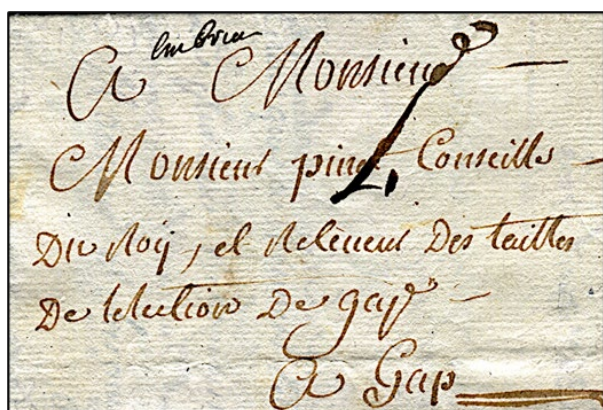 Embrun
A Monsieur
Monsieur pinet Conseille
Du Roy, et Receveur Des tailles
De lelection De gap
A Gap